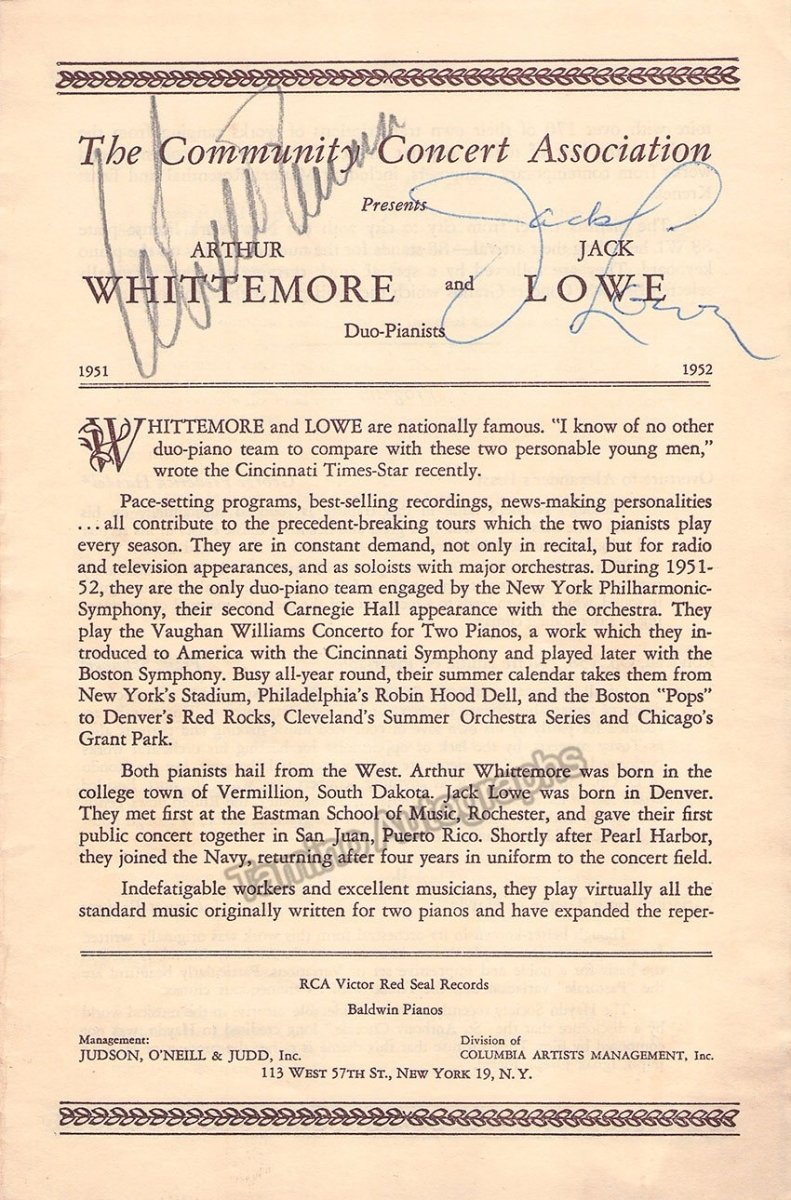 The Community Concert Association
Presents
ARTHUR JACK
WHITTEMORE and LOWE
Duo-Pianists
Jack Lowe
1951 1952
WHITTEMORE and LOWE are nationally famous. "I know of no other
duo-piano team to compare with these two personable young men,"
wrote the Cincinnati Times-Star recently.
Pace-setting programs, best-selling recordings, news-making personalities
...all contribute to the precedent-breaking tours which the two pianists play
every season. They are in constant demand, not only in recital, but for radio
and television appearances, and as soloists with major orchestras. During 1951-
52, they are the only duo-piano team engaged by the New York Philharmonic-
Symphony, their second Carnegie Hall appearance with the orchestra. They
play the Vaughan Williams Concerto for Two Pianos, a work which they in-
troduced to America with the Cincinnati Symphony and played later with the
Boston Symphony. Busy all-year round, their summer calendar takes them from
New York's Stadium, Philadelphia's Robin Hood Dell, and the Boston "Pops"
to Denver's Red Rocks, Cleveland's Summer Orchestra Series and Chicago's
Grant Park.
Both pianists hail from the West. Arthur Whittemore was born in the
college town of Vermillion, South Dakota. Jack Lowe was born in Denver.
They met first at the Eastman School of Music, Rochester, and gave their first
public concert together in San Juan, Puerto Rico. Shortly after Pearl Harbor,
they joined the Navy, returning after four years in uniform to the concert field.
Tamino Autographs
Indefatigable workers and excellent musicians, they play virtually all the
standard music originally written for two pianos and have expanded the reper-
RCA Victor Red Seal Records
Baldwin Pianos
Management: Division of
JUDSON, O'NEILL & JUDD, Inc. COLUMBIA ARTISTS MANAGEMENT, Inc.
113 WEST 57TH ST., NEW YORK 19, N. Y.